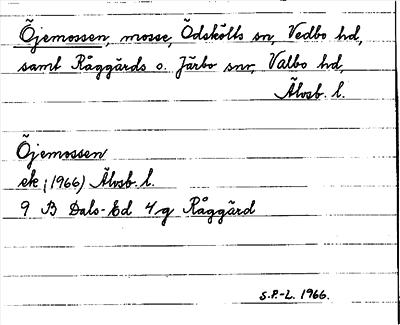 Öjemossen, mosse, Ödskölts sn, Vedbo hd,
samt Råggärds o. Järbo snr, Valbo hd,
Älvsb. l.
Öjemossen
ek (1966) Älvsb. l.
9 B Dals-Ed 4 g Råggärd
S.P.-L. 1966.